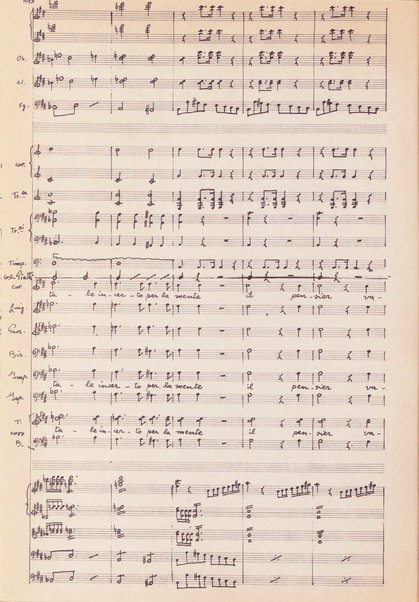 Ob.
Cl.
Fg.
Cor.
Tr.be
Tr.ni
Timp.
Cor.
ta - le incer - to per la mente il pen - sier va -
Luig.
Bis.
Imp.
ta - le incer - to per la mente il pen - sier va -
T.
ta - le in cer - to per la mente il pen - sier va -
coro
B.